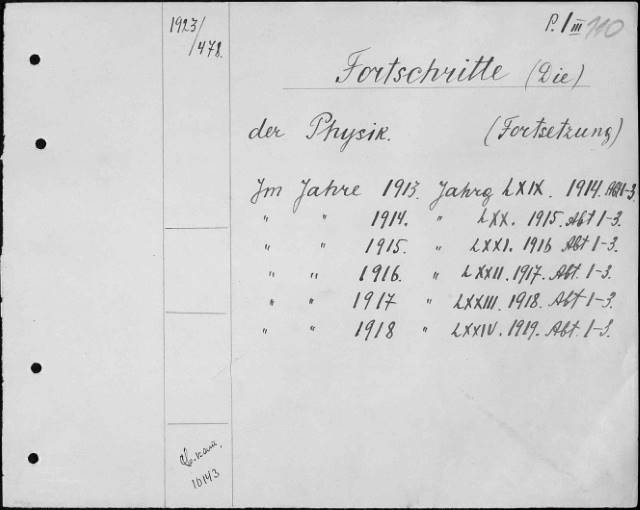 1923/
478.
P. I III 110
Fortschritte (Die)
der Physik. (Fortsetzung)
Im Jahre 1913. Jahrg LXIX. 1914. Abt 1-3.
" " 1914. " LXX. 1915. Abt 1-3.
" " 1915. " LXXI. 1916 Abt 1-3.
" " 1916. " LXXII. 1917. Abt. 1-3.
" " 1917 " LXXIII. 1918. Abt 1-3.
" " 1918 " LXXIV. 1919. Abt. 1-3.
10143